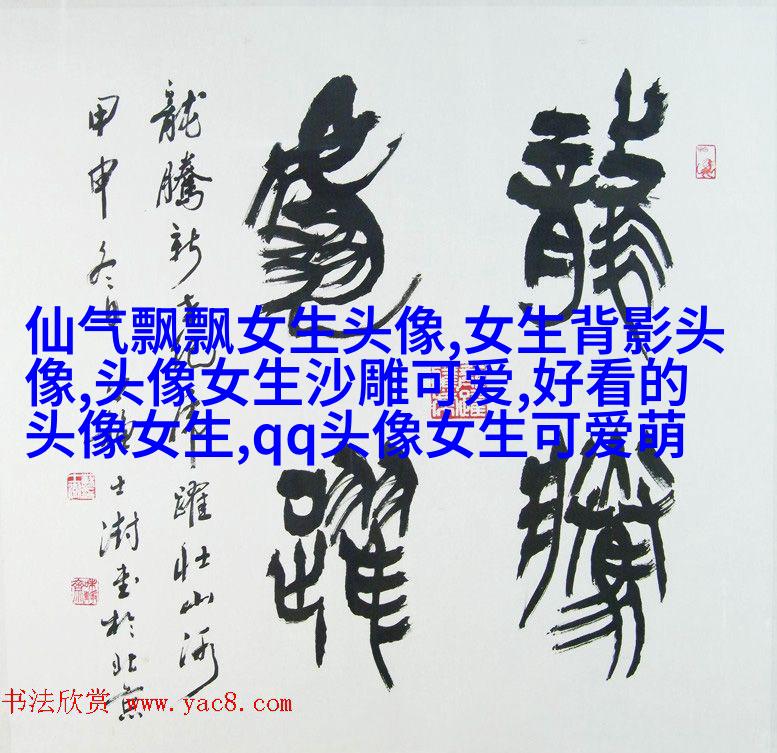 龍騰
虎躍
龍騰新世紀虎躍壯山河
甲申冬月
士澍書於北京
仙气飘飘女生头像,女生背影头
像,头像女生沙雕可爱,好看的
头像女生,qq头像女生可爱萌
书法欣赏 www.yac8.com